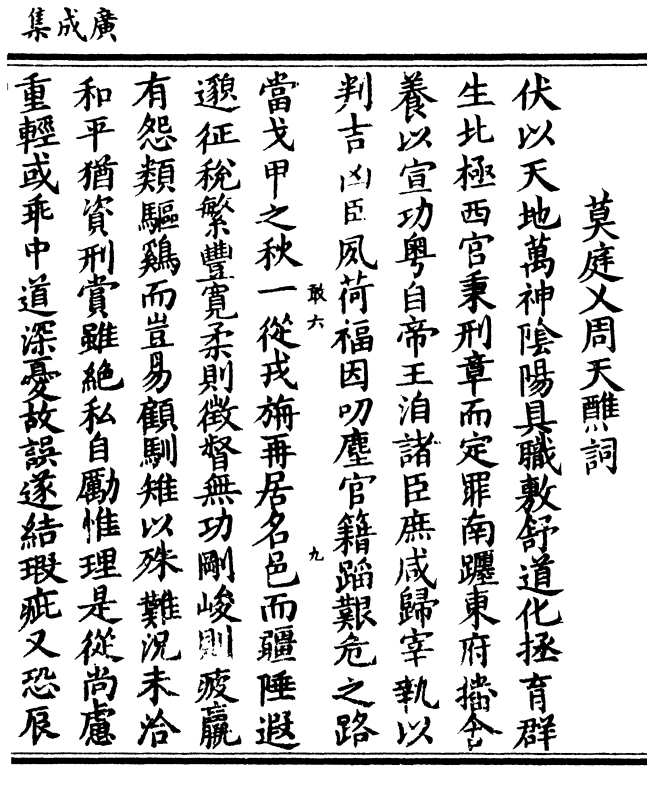 廣成集
莫庭乂周天醮詞
伏以天地萬神陰陽具職敷舒道化拯育群
生北極西官秉刑章而定罪南躔東府擋含
養以宣功粤自帝王洎諸臣庶咸歸宰執以
判吉凶臣夙荷福因叨塵官籍蹈艱危之路
當戈甲之秋一從戎旃再居名邑而疆陲遐
邈征稅繁豐寬柔則徵督無功剛峻則疲羸
有怨類驅鷄而豈易顧馴雉以殊難況未洽
和平猶資刑賞雖絶私自勵惟理是從尚慮
重輕或乖中道深憂故誤遂結瑕疵又恐辰
敢六
九